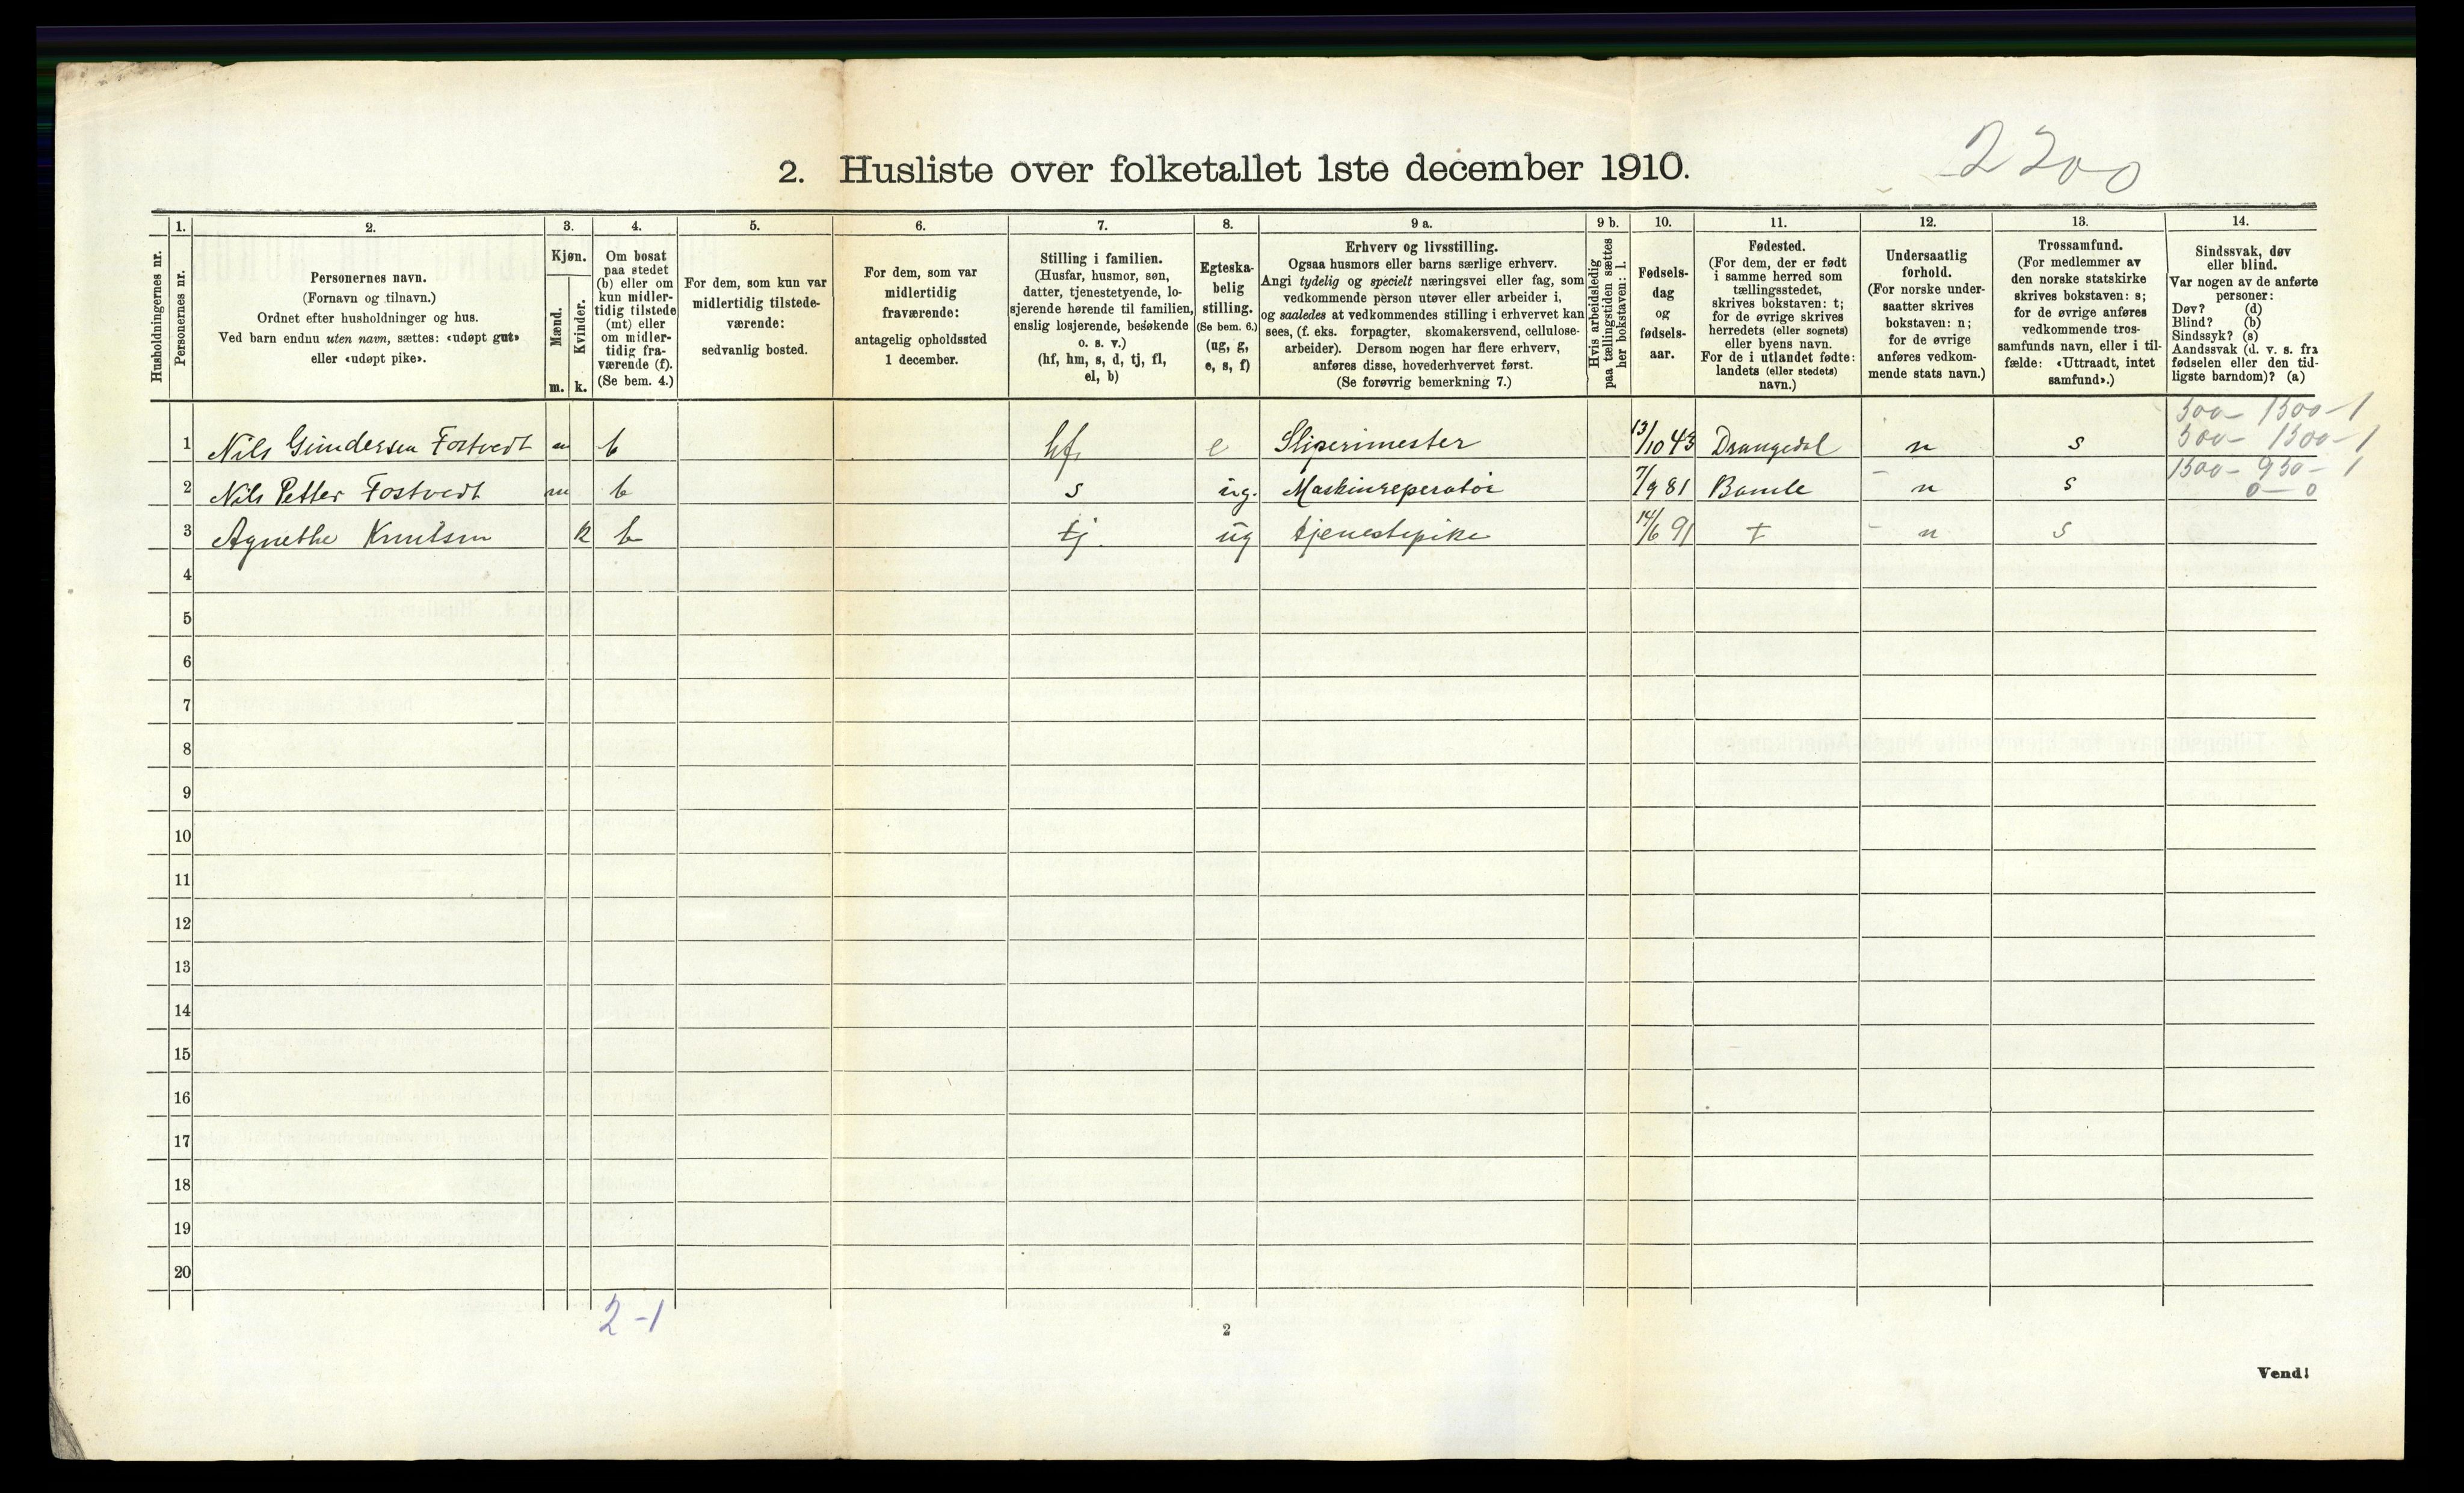 2200
2. Husliste over folketallet 1ste december 1910.
Husholdningernes nr.
1.
Personernes nr.
2.
Personernes navn.
(Fornavn og tilnavn.)
Ordnet efter husholdninger og hus.
Ved barn endnu uten navn, sættes: «udøpt gut»
eller «udøpt pike».
3.
Kjøn.
Mænd.
Kvinder.
m. k.
4.
Om bosat
paa stedet
(b) eller om
kun midler-
tidig tilstede
(mt) eller
om midler-
tidig fra-
værende (f).
(Se bem. 4.)
5.
For dem, som kun var
midlertidig tilstede-
værende:
sedvanlig bosted.
6.
For dem, som var
midlertidig
fraværende:
antagelig opholdssted
1 december.
7.
Stilling i familien.
(Husfar, husmor, søn,
datter, tjenestetyende, lo-
sjerende hørende til familien,
enslig losjerende, besøkende
o. s. v.)
(hf, hm, s, d, tj, fl,
el, b)
8.
Egteska-
belig
stilling.
(Se bem. 6.)
(ug, g,
e, s, f)
9 a.
Erhverv og livsstilling.
Ogsaa husmors eller barns særlige erhverv.
Angi tydelig og specielt næringsvei eller fag, som
vedkommende person utøver eller arbeider i,
og saaledes at vedkommendes stilling i erhvervet kan
sees, (f. eks. forpagter, skomakersvend, cellulose-
arbeider). Dersom nogen har flere erhverv,
anføres disse, hovederhvervet først.
(Se forøvrig bemerkning 7.)
9 b.
Hvis arbeidsledig
paa tællingstiden sættes
her bokstaven: l.
10.
Fødsels-
dag
og
fødsels-
aar.
11.
Fødested.
(For dem, der er født
i samme herred som
tællingsstedet,
skrives bokstaven: t;
for de øvrige skrives
herredets (eller sognets)
eller byens navn.
For de i utlandet fødte:
landets (eller stedets)
navn.)
12.
Undersaatlig
forhold.
(For norske under-
saatter skrives
bokstaven: n;
for de øvrige
anføres vedkom-
mende stats navn.)
13.
Trossamfund.
(For medlemmer av
den norske statskirke
skrives bokstaven: s;
for de øvrige anføres
vedkommende tros-
samfunds navn, eller i til-
fælde: «Uttraadt, intet
samfund».)
14.
Sindssvak, døv
eller blind.
Var nogen av de anførte
personer:
Døv? (d)
Blind? (b)
Sindssyk? (s)
Aandssvak (d. v. s. fra
fødselen eller den tid-
ligste barndom)? (a)
500 - 1500 - 1
1 Nils Gundersen Fostvedt m b hf e Sliperimester 13/10 43 Drangedal n s 500 - 1500 - 1
2 Nils Petter Fostvedt m b s ug. Maskinreperatör 7/9 81 Bamle n s 1500 - 950 - 1
0 - 0
3 Agnethe Knutsen k b tj. ug tjenestepike 14/6 91 t n s
4
5
6
7
8
9
10
11
12
13
14
15
16
17
18
19
20
2-1
2
Vend!